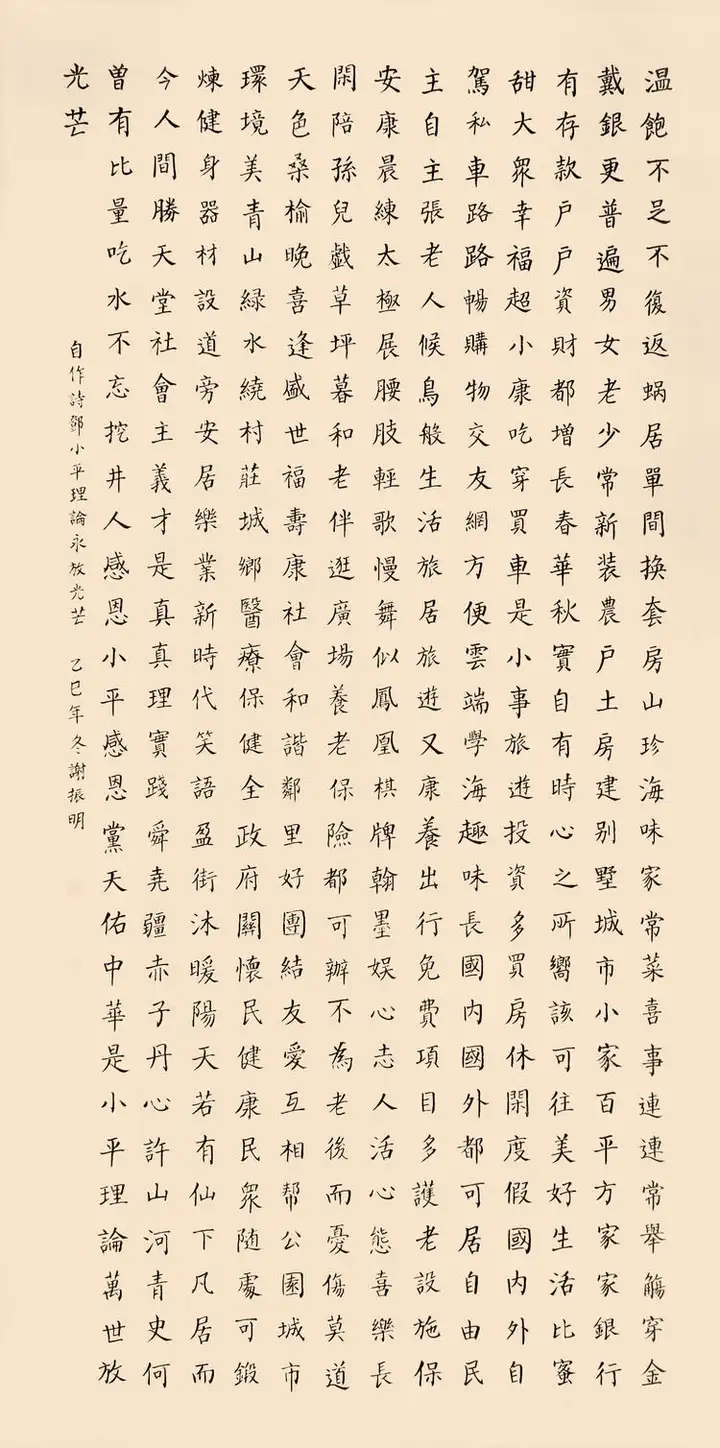 温飽不足不復返蜗居單間换套房山珍海味家常菜喜事連連常舉觴穿金
戴銀更普遍男女老少常新装農户土房建别墅城市小家百平方家家銀行
有存款户户資財都增長春華秋實自有時心之所嚮該可往美好生活比蜜
甜大衆幸福超小康吃穿買車是小事旅遊投資多買房休閑度假國内外自
駕私車路路暢購物交友網方便雲端學海趣味長國内國外都可居自由民
主自主張老人候鳥般生活旅居旅遊又康養出行免費項目多護老設施保
安康晨練太極展腰肢輕歌慢舞似鳳凰棋牌翰墨娱心志人活心態喜樂長
閑陪孫兒戲草坪暮和老伴逛廣場養老保險都可辦不為老後而憂傷莫道
天色桑榆晚喜逢盛世福壽康社會和諧鄰里好團結友愛互相帮公園城市
環境美青山緑水繞村莊城鄉醫療保健全政府關懷民健康民衆随處可鍛
煉健身器材設道旁安居樂業新時代笑語盈街沐暖陽天若有仙下凡居而
今人間勝天堂社會主義才是真真理實踐舜堯疆赤子丹心許山河青史何
曾有比量吃水不忘挖井人感恩小平感恩黨天佑中華是小平理論萬世放
光芒
自作詩鄧小平理論永放光芒 乙巳年冬謝振明